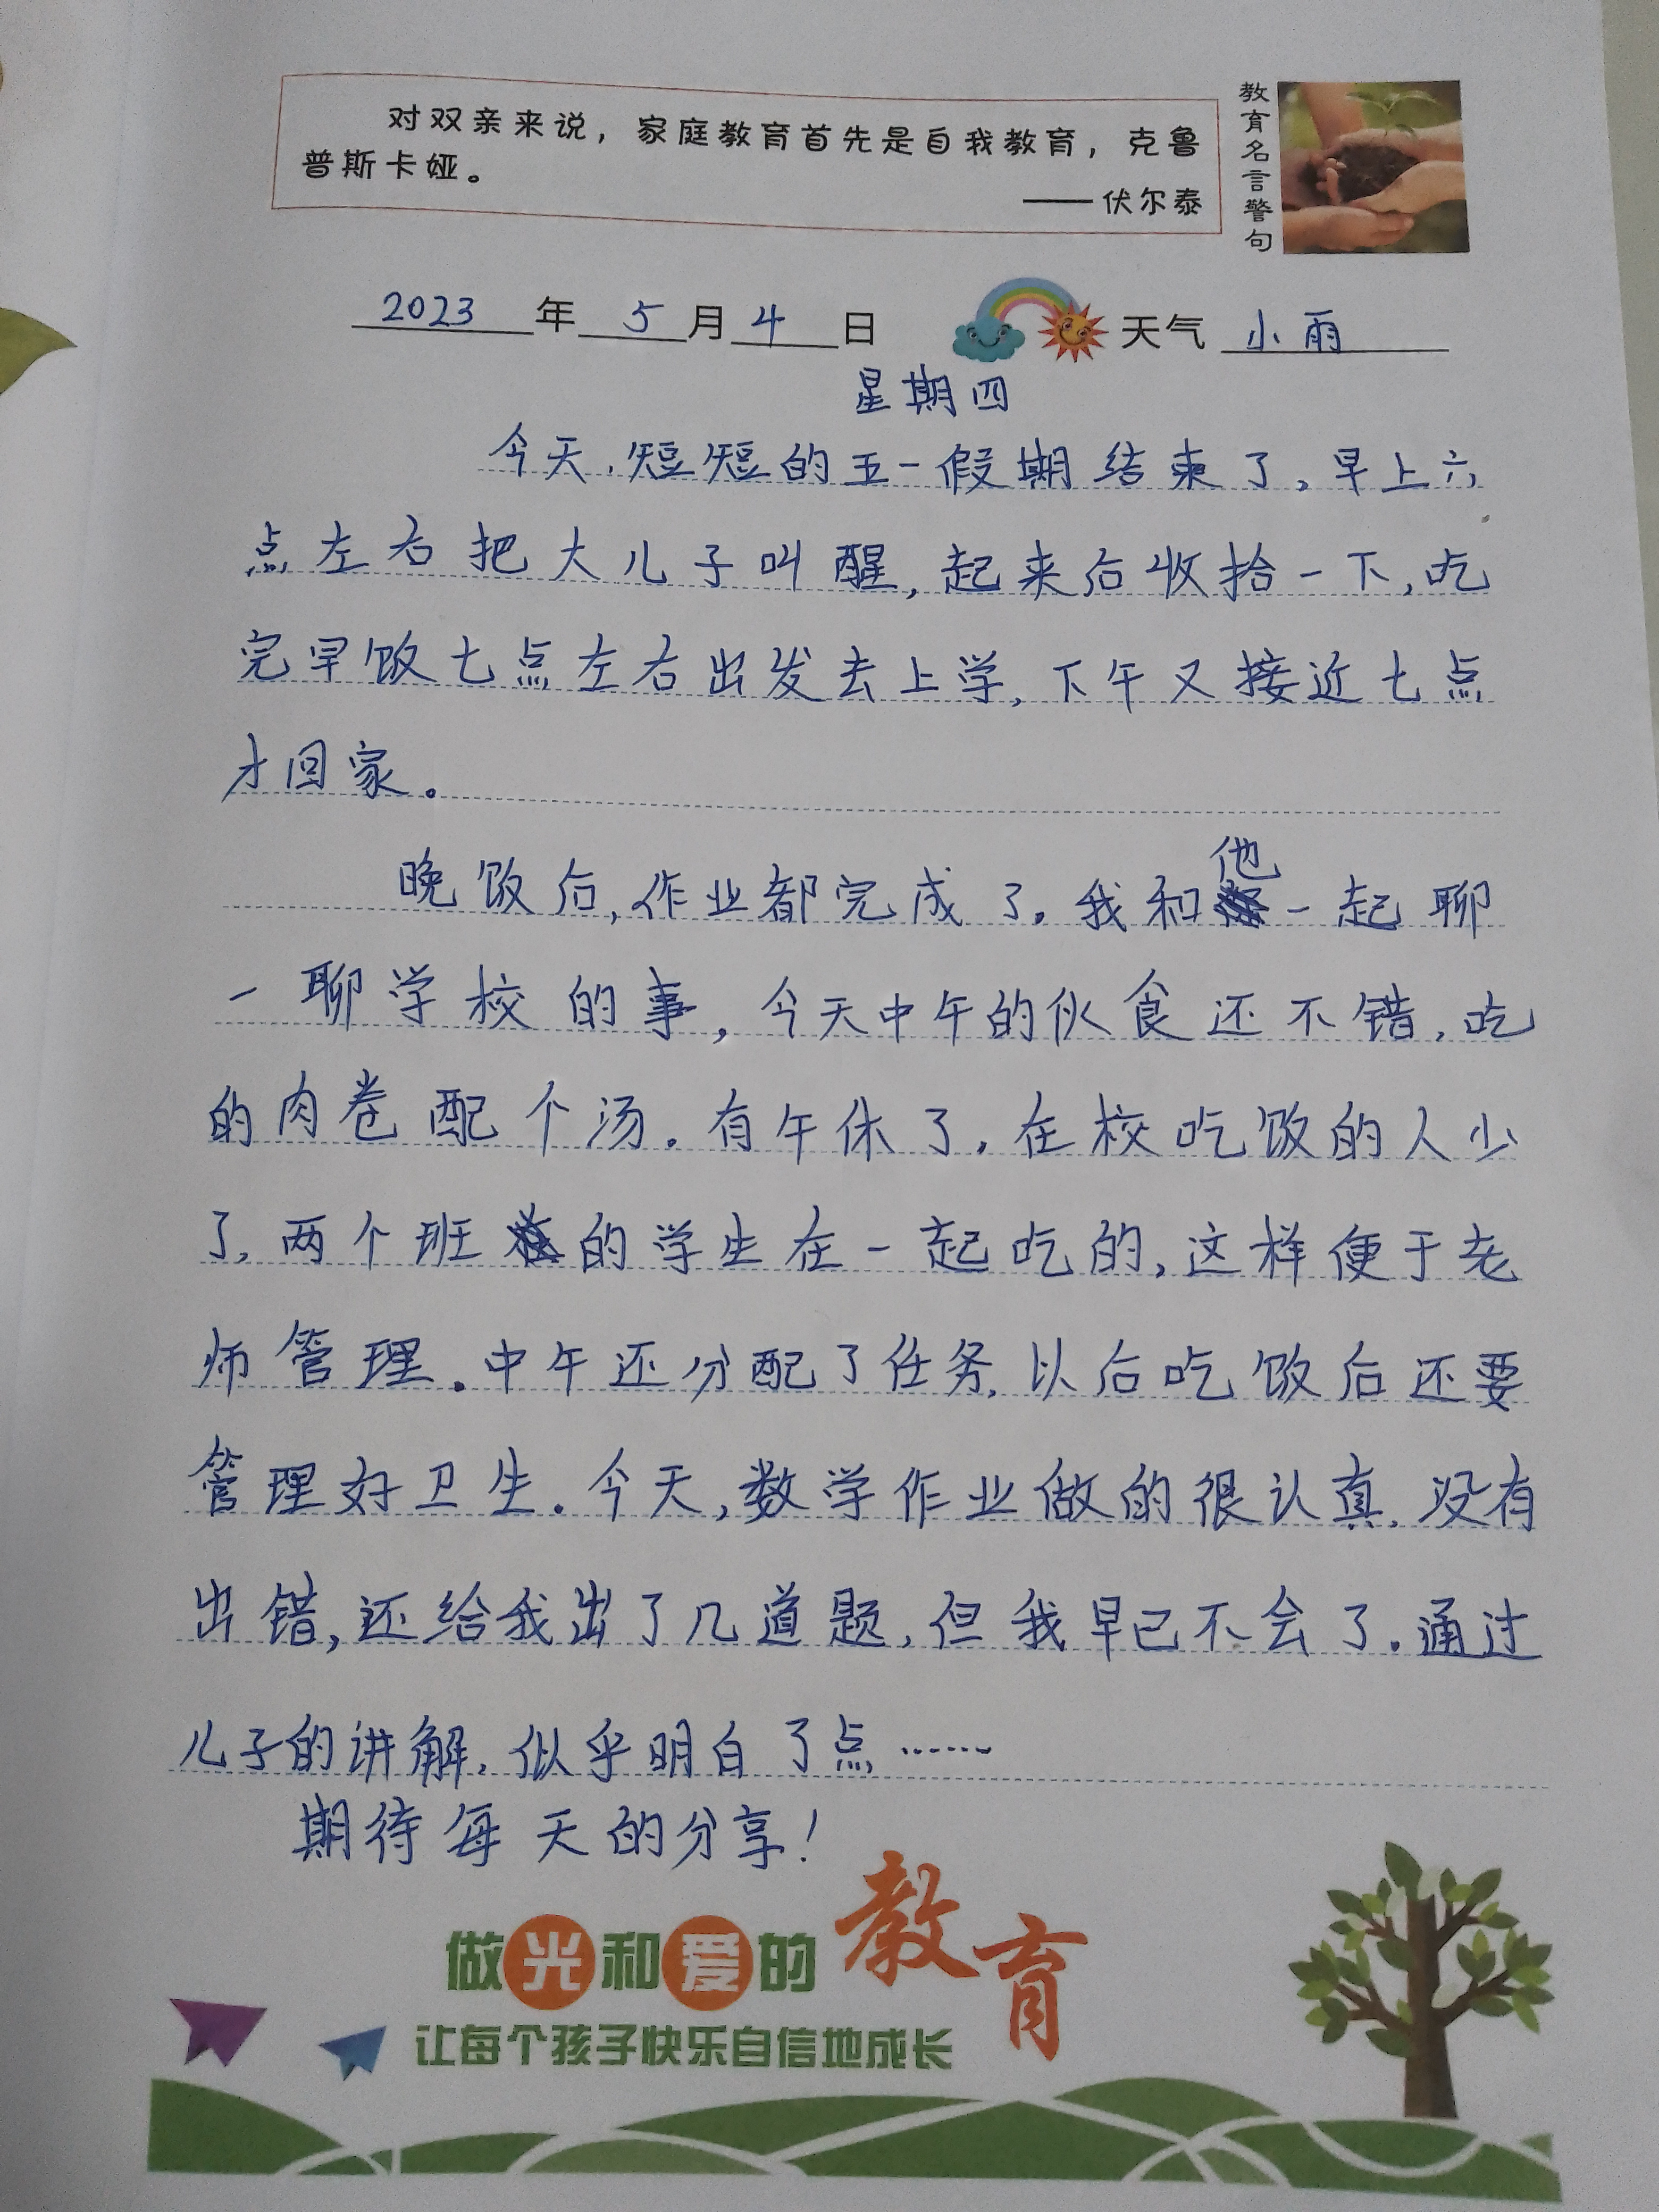 对双亲来说，家庭教育首先是自我教育，克鲁
普斯卡娅。
——伏尔泰
教育名言警句
2023年5月4日 天气 小雨
星期四
今天，短短的五一假期结束了。早上六
点左右把大儿子叫醒，起来后收拾一下，吃
完早饭七点左右出发去上学，下午又接近七点
才回家。
晚饭后，作业都完成了。我和他一起聊
一聊学校的事，今天中午的伙食还不错，吃
的肉卷配个汤。有午休了。在校吃饭的人少
了，两个班的学生在一起吃的，这样便于老
师管理。中午还分配了任务，以后吃饭后还要
管理好卫生。今天，数学作业做的很认真，没有
出错，还给我出了几道题，但我早已不会了。通过
儿子的讲解，似乎明白了点……
期待每天的分享！
做光和爱的教育
让每个孩子快乐自信地成长